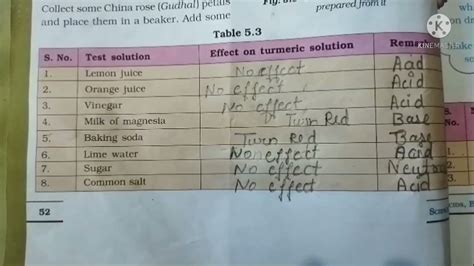 Collect some China rose (Gudhal) petals
and place them in a beaker. Add some
prepared from it
Table 5.3
S. No. Test solution Effect on turmeric solution Remarks
1. Lemon juice No effect Acid
2. Orange juice No effect Acid
3. Vinegar No effect Acid
4. Milk of magnesia Turn Red Base
5. Baking soda Turn Red Base
6. Lime water No effect Acid
7. Sugar No effect Neutral
8. Common salt No effect Acid
52
KINEMA
S.
No.
1.
2.
3.